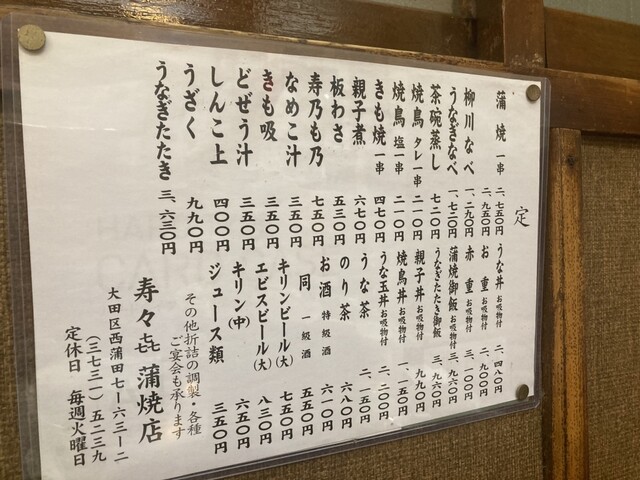 定
蒲焼 一串 二、七五〇円
二、九五〇円
柳川なべ 一、二九〇円
うなぎなべ 一、七二〇円
茶碗蒸し 七二〇円
焼鳥 タレ一串 二一〇円
焼鳥 塩一串 二一〇円
きも焼 一串 四七〇円
親子煮 六七〇円
板わさ 五三〇円
寿乃も乃 七五〇円
なめこ汁 三五〇円
きも吸 三五〇円
どぜう汁 三五〇円
しんこ上 四〇〇円
うざく 九九〇円
うなぎたたき 三、六三〇円
うな丼 お吸物付 二、四八〇円
お重 お吸物付 二、九〇〇円
赤重 お吸物付 三、一〇〇円
蒲焼御飯 お吸物付 三、九六〇円
うなぎたたき御飯 三、九六〇円
親子丼 お吸物付 九九〇円
焼鳥丼 お吸物付 一、一五〇円
うな玉丼 お吸物付 二、二〇〇円
うな茶 二、一五〇円
のり茶 六八〇円
お酒 特級酒 六一〇円
同 一級酒 五五〇円
キリンビール(大) 七五〇円
エビスビール(大) 八三〇円
キリン(中) 六五〇円
ジュース類 三五〇円
その他折詰の調製・各種
ご宴会も承ります
寿々㐂 蒲焼店
大田区西蒲田七ー六三ー二
(三七三一)五二三九
定休日 毎週火曜日